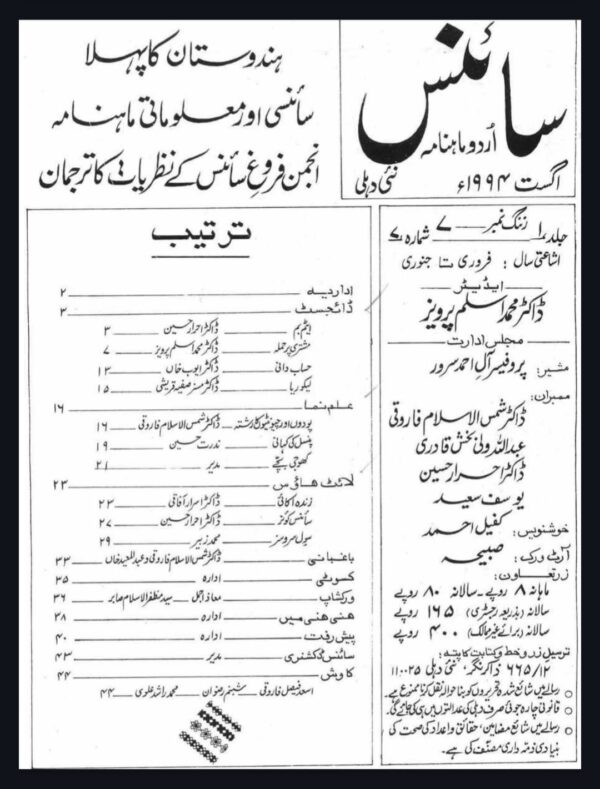 سائنس
اُردو ماہنامہ
نئی دہلی
اگست ۱۹۹۴ء
ہندوستان کا پہلا
سائنسی اور معلوماتی ماہنامہ
انجمن فروغِ سائنس کے نظریات کا ترجمان
جلد ۱ رننگ نمبر ۷ شمارہ ۷
اشاعتی سال : فروری تا جنوری
ایڈیٹر
ڈاکٹر محمد اسلم پرویز
مجلس ادارت
مشیر: پروفیسر آل احمد سرور
ممبران:
ڈاکٹر شمس الاسلام فاروقی
عبداللہ ولی بخش قادری
ڈاکٹر احرار حسین
یوسف سعید
خوشنویس: کفیل احمد
آرٹ ورک: صبیحہ
زر تعاون:
ماہانہ ۸ روپے - سالانہ ۸۰ روپے
سالانہ (بذریعہ رجسٹری) ۱۶۵ روپے
سالانہ (برائے غیر ممالک) ۴۰۰ روپے
ترسیل زر و خط و کتابت کا پتہ:
۶۶۵/۱۲ ذاکر نگر، نئی دہلی ۱۱۰۰۲۵
رسالے میں شائع شدہ تحریروں کو بنا حوالہ نقل کرنا ممنوع ہے۔
قانونی چارہ جوئی صرف دہلی کی عدالتوں میں کی جائے گی۔
رسالے میں شائع مضامین، حقائق و اعداد کی صحت کی
بنیادی ذمہ داری مصنف کی ہے۔
ترتیب
اداریہ ۲
ڈائجسٹ ۳
ایٹم بم ڈاکٹر احرار حسین ۳
مشتری پر حملہ ڈاکٹر محمد اسلم پرویز ۷
حساب دانی ڈاکٹر ایوب خاں ۱۲
لیکوریا ڈاکٹر مسز صفیہ قریشی ۱۵
علم نما ۱۶
پودوں اور چیونٹیوں کا رشتہ ڈاکٹر شمس الاسلام فاروقی ۱۶
پنسل کی کہانی ندرت حسین ۱۹
کھوجی بچے مدیر ۲۱
لائٹ ہاؤس ۲۳
زندہ اکائی ڈاکٹر اسرار آفاقی ۲۳
سائنس کوئز ڈاکٹر احرار حسین ۲۷
سول سروسز محمد زبیر ۲۹
باغبانی ڈاکٹر شمس الاسلام فاروقی و عبدالمعید خاں ۳۳
کسوٹی ادارہ ۳۵
ورکشاپ معاذ اجمل سید مظفر الاسلام صابر ۳۶
ہنسی ہنسی میں ادارہ ۳۸
پیش رفت ادارہ ۴۰
سائنس ڈکشنری مدیر ۴۳
کاوش ۴۴
اسعد فیصل فاروقی شبنم رضوان محمد راشد علوی ۴۴